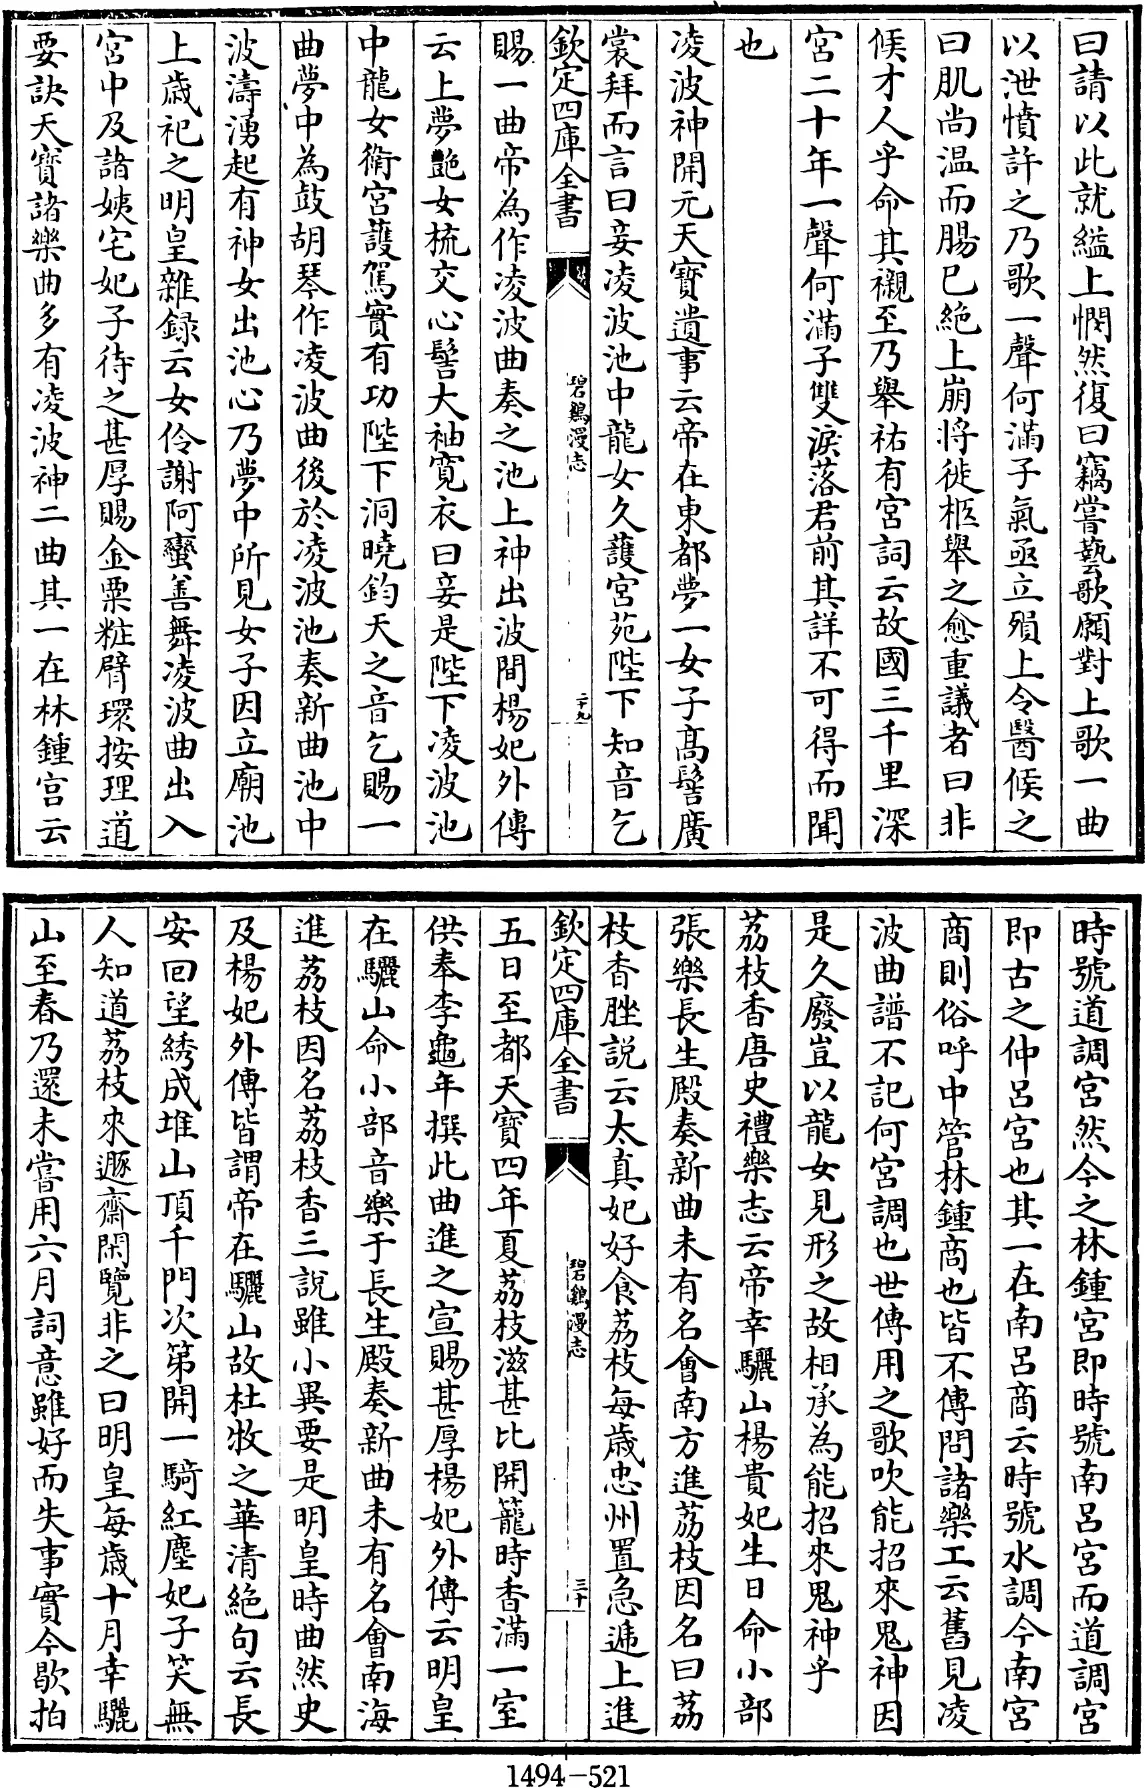 曰請以此就縊上憫然復曰竊嘗藝歌願對上歌一曲
以泄憤許之乃歌一聲何滿子氣亟立殞上令醫候之
曰肌尚温而腸已絶上崩將徙柩舉之愈重議者曰非
候才人乎命其櫬至乃舉祐有宮詞云故國三千里深
宮二十年一聲何滿子雙淚落君前其詳不可得而聞
也
凌波神開元天寶遺事云帝在東都夢一女子髙髻廣
裳拜而言曰妾凌波池中龍女久護宮苑陛下知音乞
欽定四庫全書
碧鷄漫志
二十九
賜一曲帝為作凌波曲奏之池上神出波間楊妃外傳
云上夢艶女梳交心髻大袖寛衣曰妾是陛下凌波池
中龍女衛宮護駕實有功陛下洞曉鈞天之音乞賜一
曲夢中為鼓胡琴作凌波曲後於凌波池奏新曲池中
波濤湧起有神女出池心乃夢中所見女子因立廟池
上歳祀之明皇雜録云女伶謝阿蠻善舞凌波曲出入
宮中及諸姨宅妃子待之甚厚賜金粟粧臂環按理道
要訣天寶諸樂曲多有凌波神二曲其一在林鍾宮云
時號道調宮然今之林鍾宮即時號南呂宮而道調宮
即古之仲呂宮也其一在南呂商云時號水調今南宮
商則俗呼中管林鍾商也皆不傳問諸樂工云舊見凌
波曲譜不記何宮調也世傳用之歌吹能招來鬼神因
是久廢豈以龍女見形之故相承為能招來鬼神乎
荔枝香唐史禮樂志云帝幸驪山楊貴妃生日命小部
張樂長生殿奏新曲未有名㑹南方進荔枝因名曰荔
枝香脞説云太真妃好食荔枝每歳忠州置急遞上進
欽定四庫全書
碧鷄漫志
三十
五日至都天寶四年夏荔枝滋甚比開籠時香滿一室
供奉李龜年撰此曲進之宣賜甚厚楊妃外傳云明皇
在驪山命小部音樂于長生殿奏新曲未有名㑹南海
進荔枝因名荔枝香三說雖小異要是明皇時曲然史
及楊妃外傳皆謂帝在驪山故杜牧之華清絶句云長
安回望綉成堆山頂千門次第開一騎紅塵妃子笑無
人知道荔枝來遯齋閑覽非之曰明皇每歳十月幸驪
山至春乃還未嘗用六月詞意雖好而失事實今歇拍
1494-521